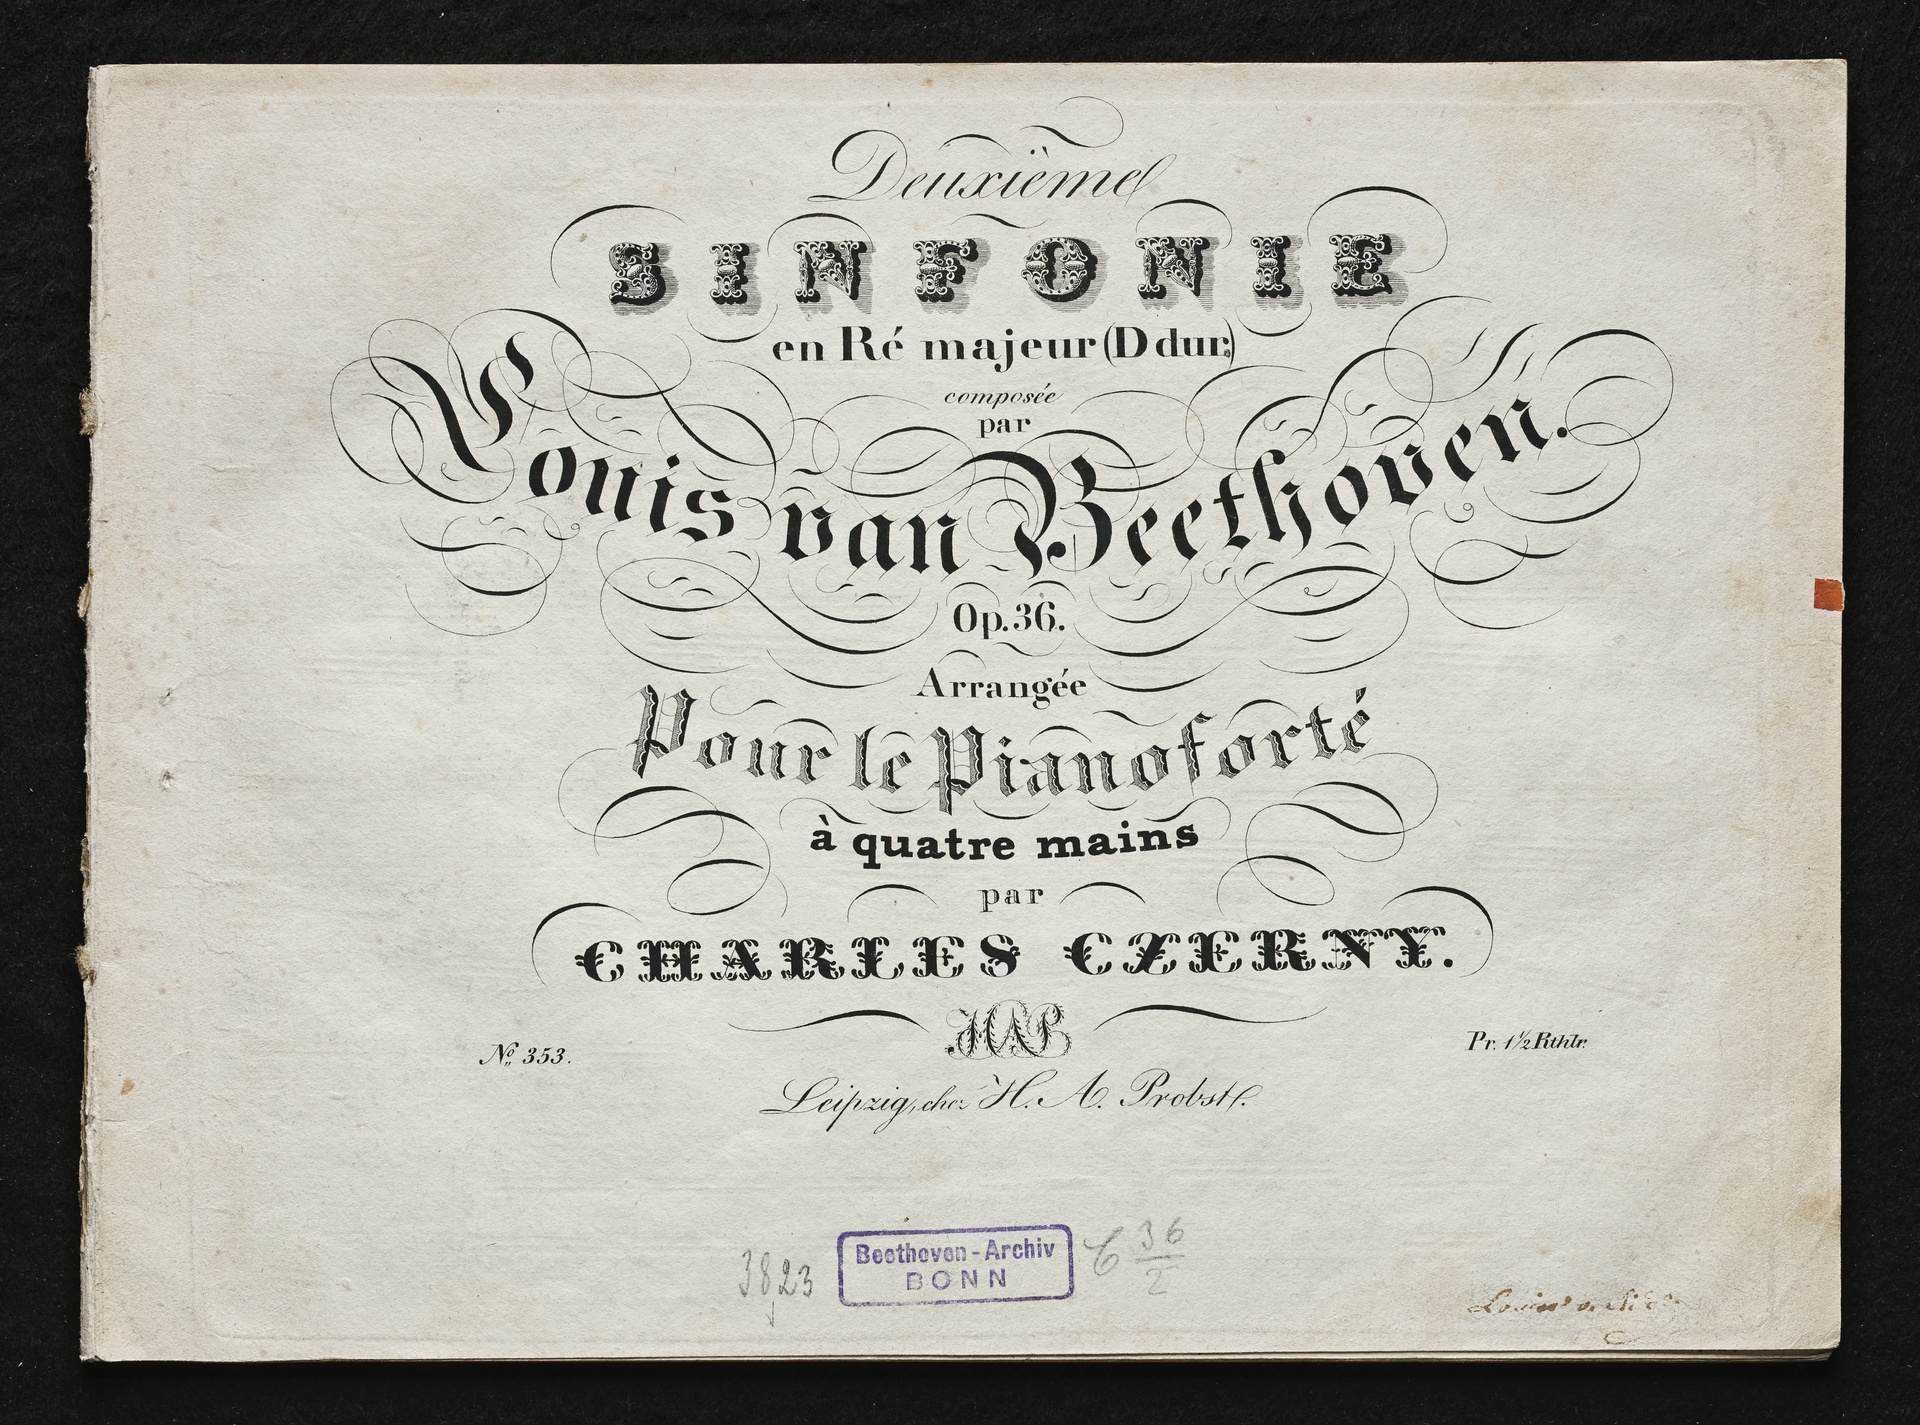 Deuxième
SINFONIE
en Ré majeur (D dur,)
composée
par
Louis van Beethoven.
Op. 36.
Arrangée
Pour le Pianoforté
à quatre mains
par
CHARLES CZERNY.
HAP
No. 353.
Pr. 1 1/2 Rthlr.
Leipzig, chez H. A. Probst.
3823
Beethoven-Archiv
BONN
C 36/2